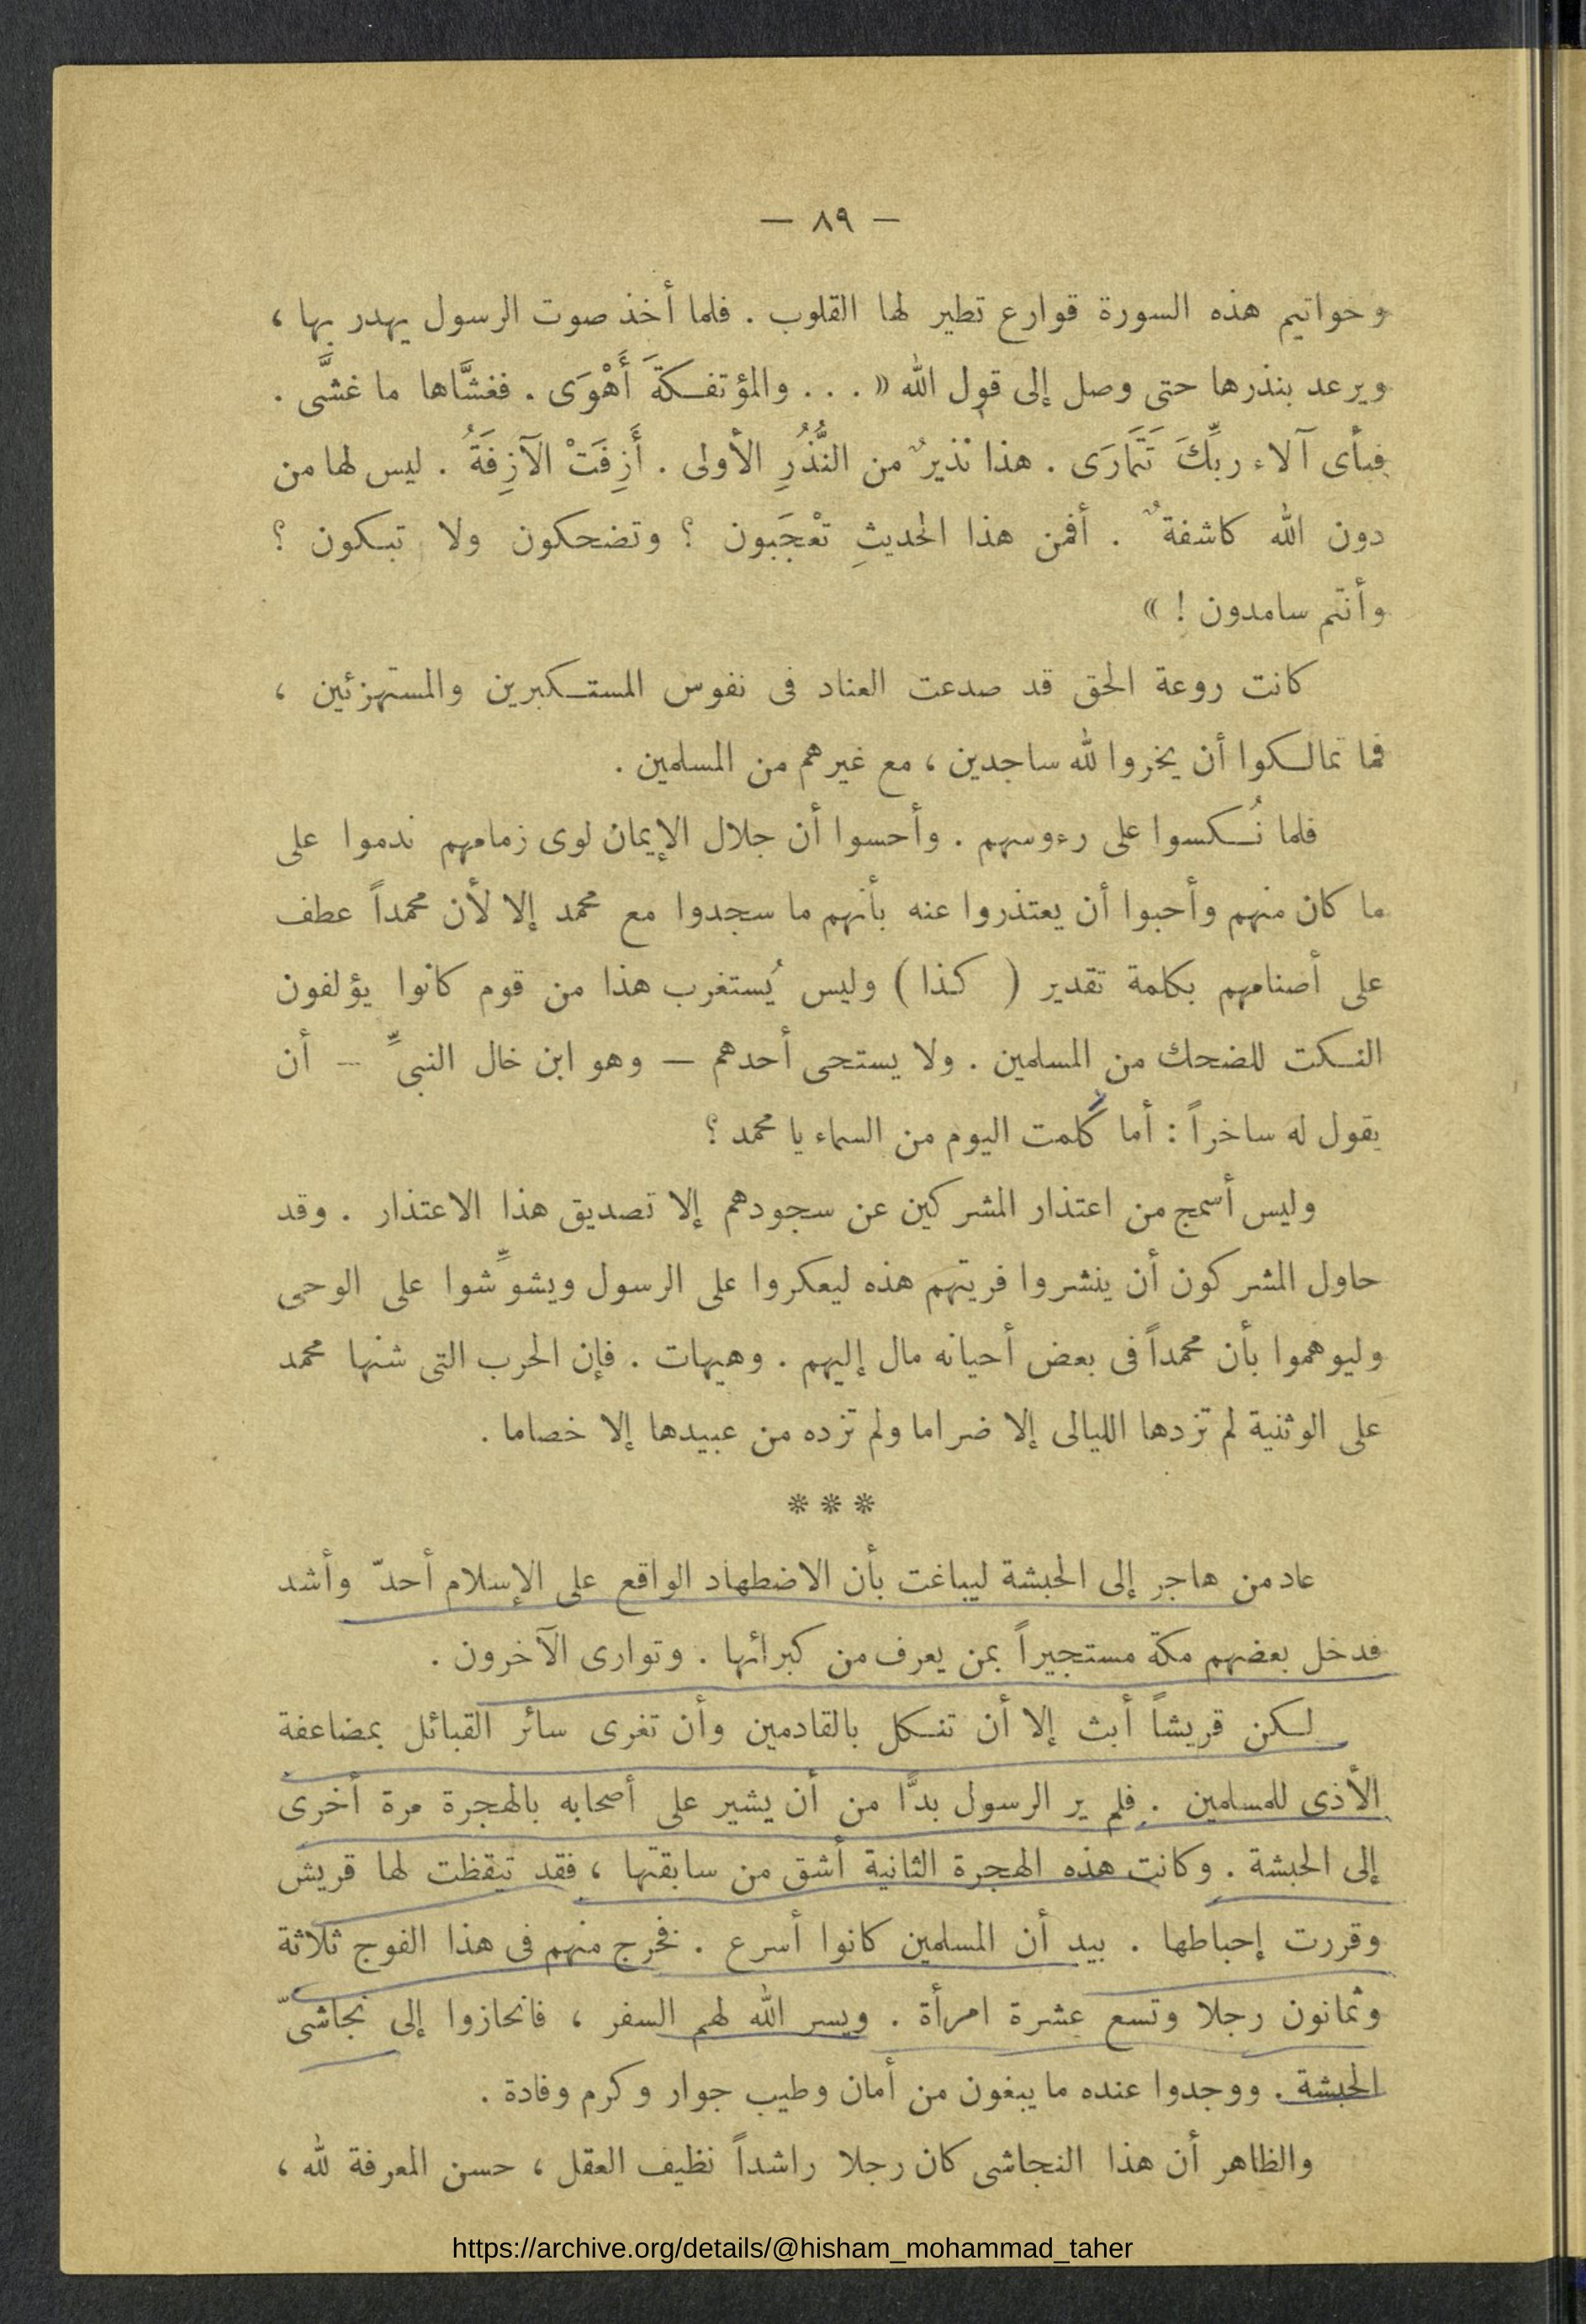 — ٨٩ —
وخواتيم هذه السورة قوارع تطير لها القلوب . فلما أخذ صوت الرسول يهدر بها ،
ويرعد بنذرها حتى وصل إلى قول الله « . . . والمؤتفكةَ أَهْوَى . فغشَّاها ما غشَّى .
فبأى آلاء ربِّكَ تَتَمَارَى . هذا نذيرٌ من النُّذُرِ الأولى . أَزِفَتْ الآزِفَةُ . ليس لها من
دون الله كاشفةٌ . أفمن هذا الحديثِ تعْجَبون ؟ وتضحكون ولا تبكون ؟
وأنتم سامدون ! »
كانت روعة الحق قد صدعت العناد فى نفوس المستكبرين والمستهزئين ،
فما تمالكوا أن يخروا لله ساجدين ، مع غيرهم من المسلمين .
فلما نُكسوا على رءوسهم . وأحسوا أن جلال الإيمان لوى زمامهم ندموا على
ما كان منهم وأحبوا أن يعتذروا عنه بأنهم ما سجدوا مع محمد إلا لأن محمداً عطف
على أصنامهم بكلمة تقدير ( كذا ) وليس يُستغرب هذا من قوم كانوا يؤلفون
النكت للضحك من المسلمين . ولا يستحى أحدهم — وهو ابن خال النبىِّ — أن
يقول له ساخراً : أما كُلمت اليوم من السماء يا محمد ؟
وليس أسمج من اعتذار المشركين عن سجودهم إلا تصديق هذا الاعتذار . وقد
حاول المشركون أن ينشروا فريتهم هذه ليعكروا على الرسول ويشوِّشوا على الوحى
وليوهموا بأن محمداً فى بعض أحيانه مال إليهم . وهيهات . فإن الحرب التى شنها محمد
على الوثنية لم تزدها الليالى إلا ضراما ولم تزده من عبيدها إلا خصاما .
* * *
عاد من هاجر إلى الحبشة ليباغت بأن الاضطهاد الواقع على الإسلام أحدّ وأشد
فدخل بعضهم مكة مستجيراً بمن يعرف من كبرائها . وتوارى الآخرون .
لكن قريشاً أبت إلا أن تنكل بالقادمين وأن تغرى سائر القبائل بمضاعفة
الأذى للمسلمين . فلم ير الرسول بدًّا من أن يشير على أصحابه بالهجرة مرة أخرى
إلى الحبشة . وكانت هذه الهجرة الثانية أشق من سابقتها ، فقد تيقظت لها قريش
وقررت إحباطها . بيد أن المسلمين كانوا أسرع . فخرج منهم فى هذا الفوج ثلاثة
وثمانون رجلا وتسع عشرة امرأة . ويسر الله لهم السفر ، فانحازوا إلى نجاشىّ
الحبشة . ووجدوا عنده ما يبغون من أمان وطيب جوار وكرم وفادة .
والظاهر أن هذا النجاشى كان رجلا راشداً نظيف العقل ، حسن المعرفة لله ،
https://archive.org/details/@hisham_mohammad_taher